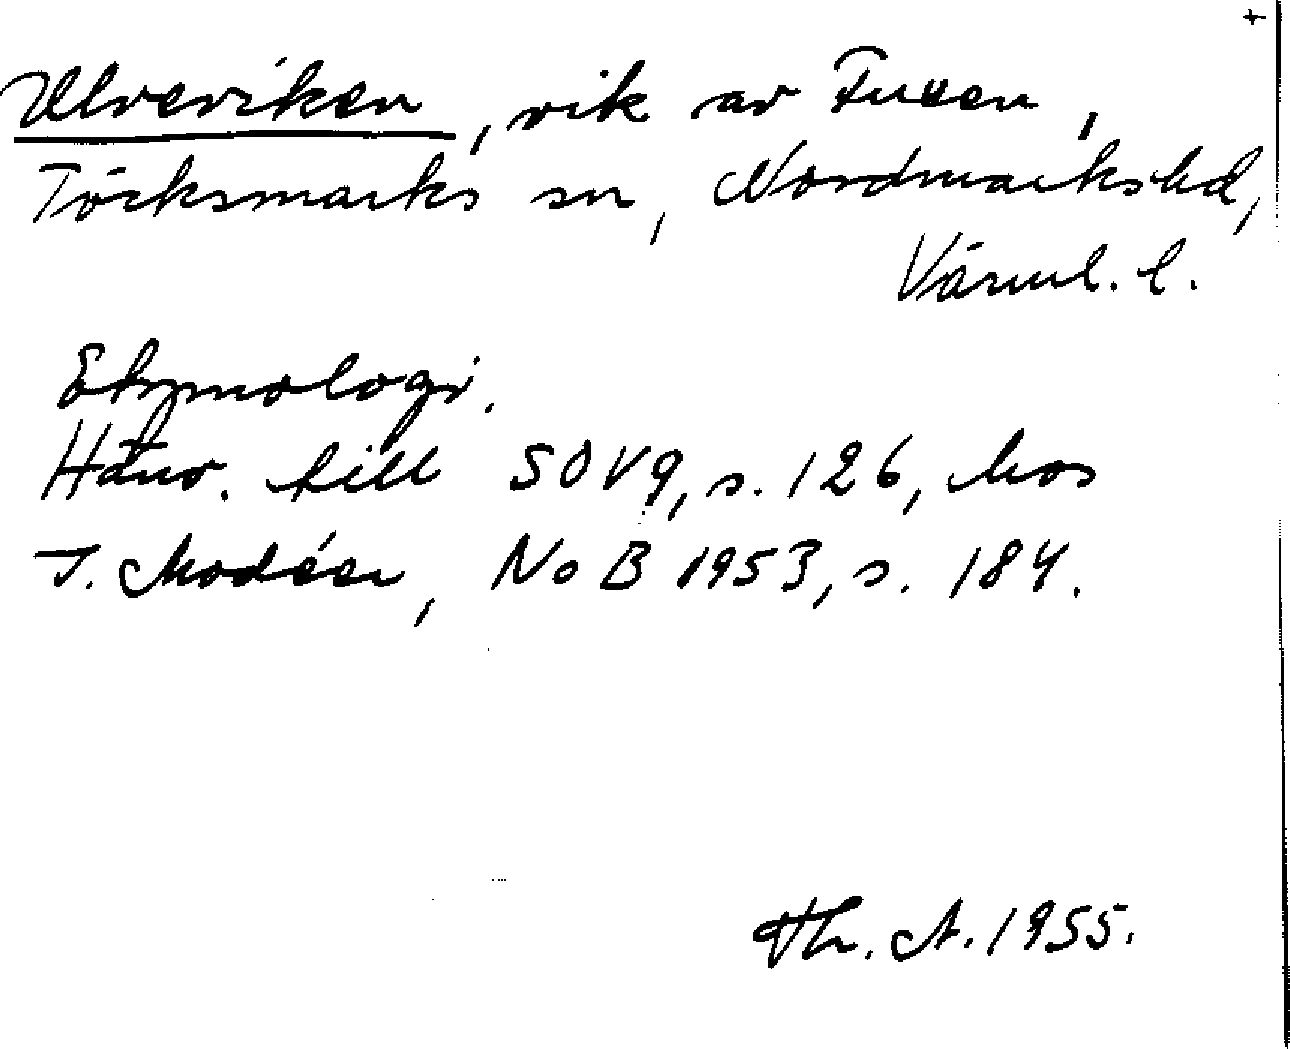 +
Ulveviken, vik av Fusen,
Töcksmarks sn, Nordmarks hd,
Värml. l.
Etymologi.
Hänv. till SOVg, s. 126, hos
I. Modéer, NoB 1953, s. 184.
Th. A. 1955.